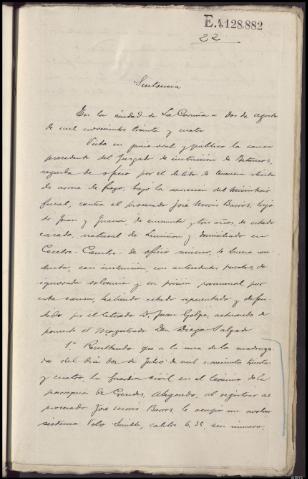 E.4.128.882
22
Sentencia
En la ciudad de La Coruña a dos de agosto
de mil novecientos treinta y cuatro
Visto en juicio oral y público la causa
procedente del Juzgado de instrucción de Betanzos,
seguida de oficio por el delito de tenencia ilícita
de arma de fuego, bajo la acusación del Ministerio
fiscal, contra el procesado José Buros, hijo
de Juan y de cincuenta y años, de estado
casado, natural de y domiciliado en
de oficio, de buena con-
ducta, con instrucción, con antecedentes penales, de
ignorada solvencia y en prisión provisional por
esta causa, habiendo estado representado y defen-
dido por el Letrado D. Juan Golpe, actuando de
ponente el Magistrado Don Diego Salgado
1º Resultando que a la una de la madruga
da del día dos de Julio de mil novecientos treinta
y cuatro, la guardia civil en el término de la
parroquia de, al registrar al
procesado José Buros le ocupó un revolver
sistema Velo, calibre 6,35 sin número,